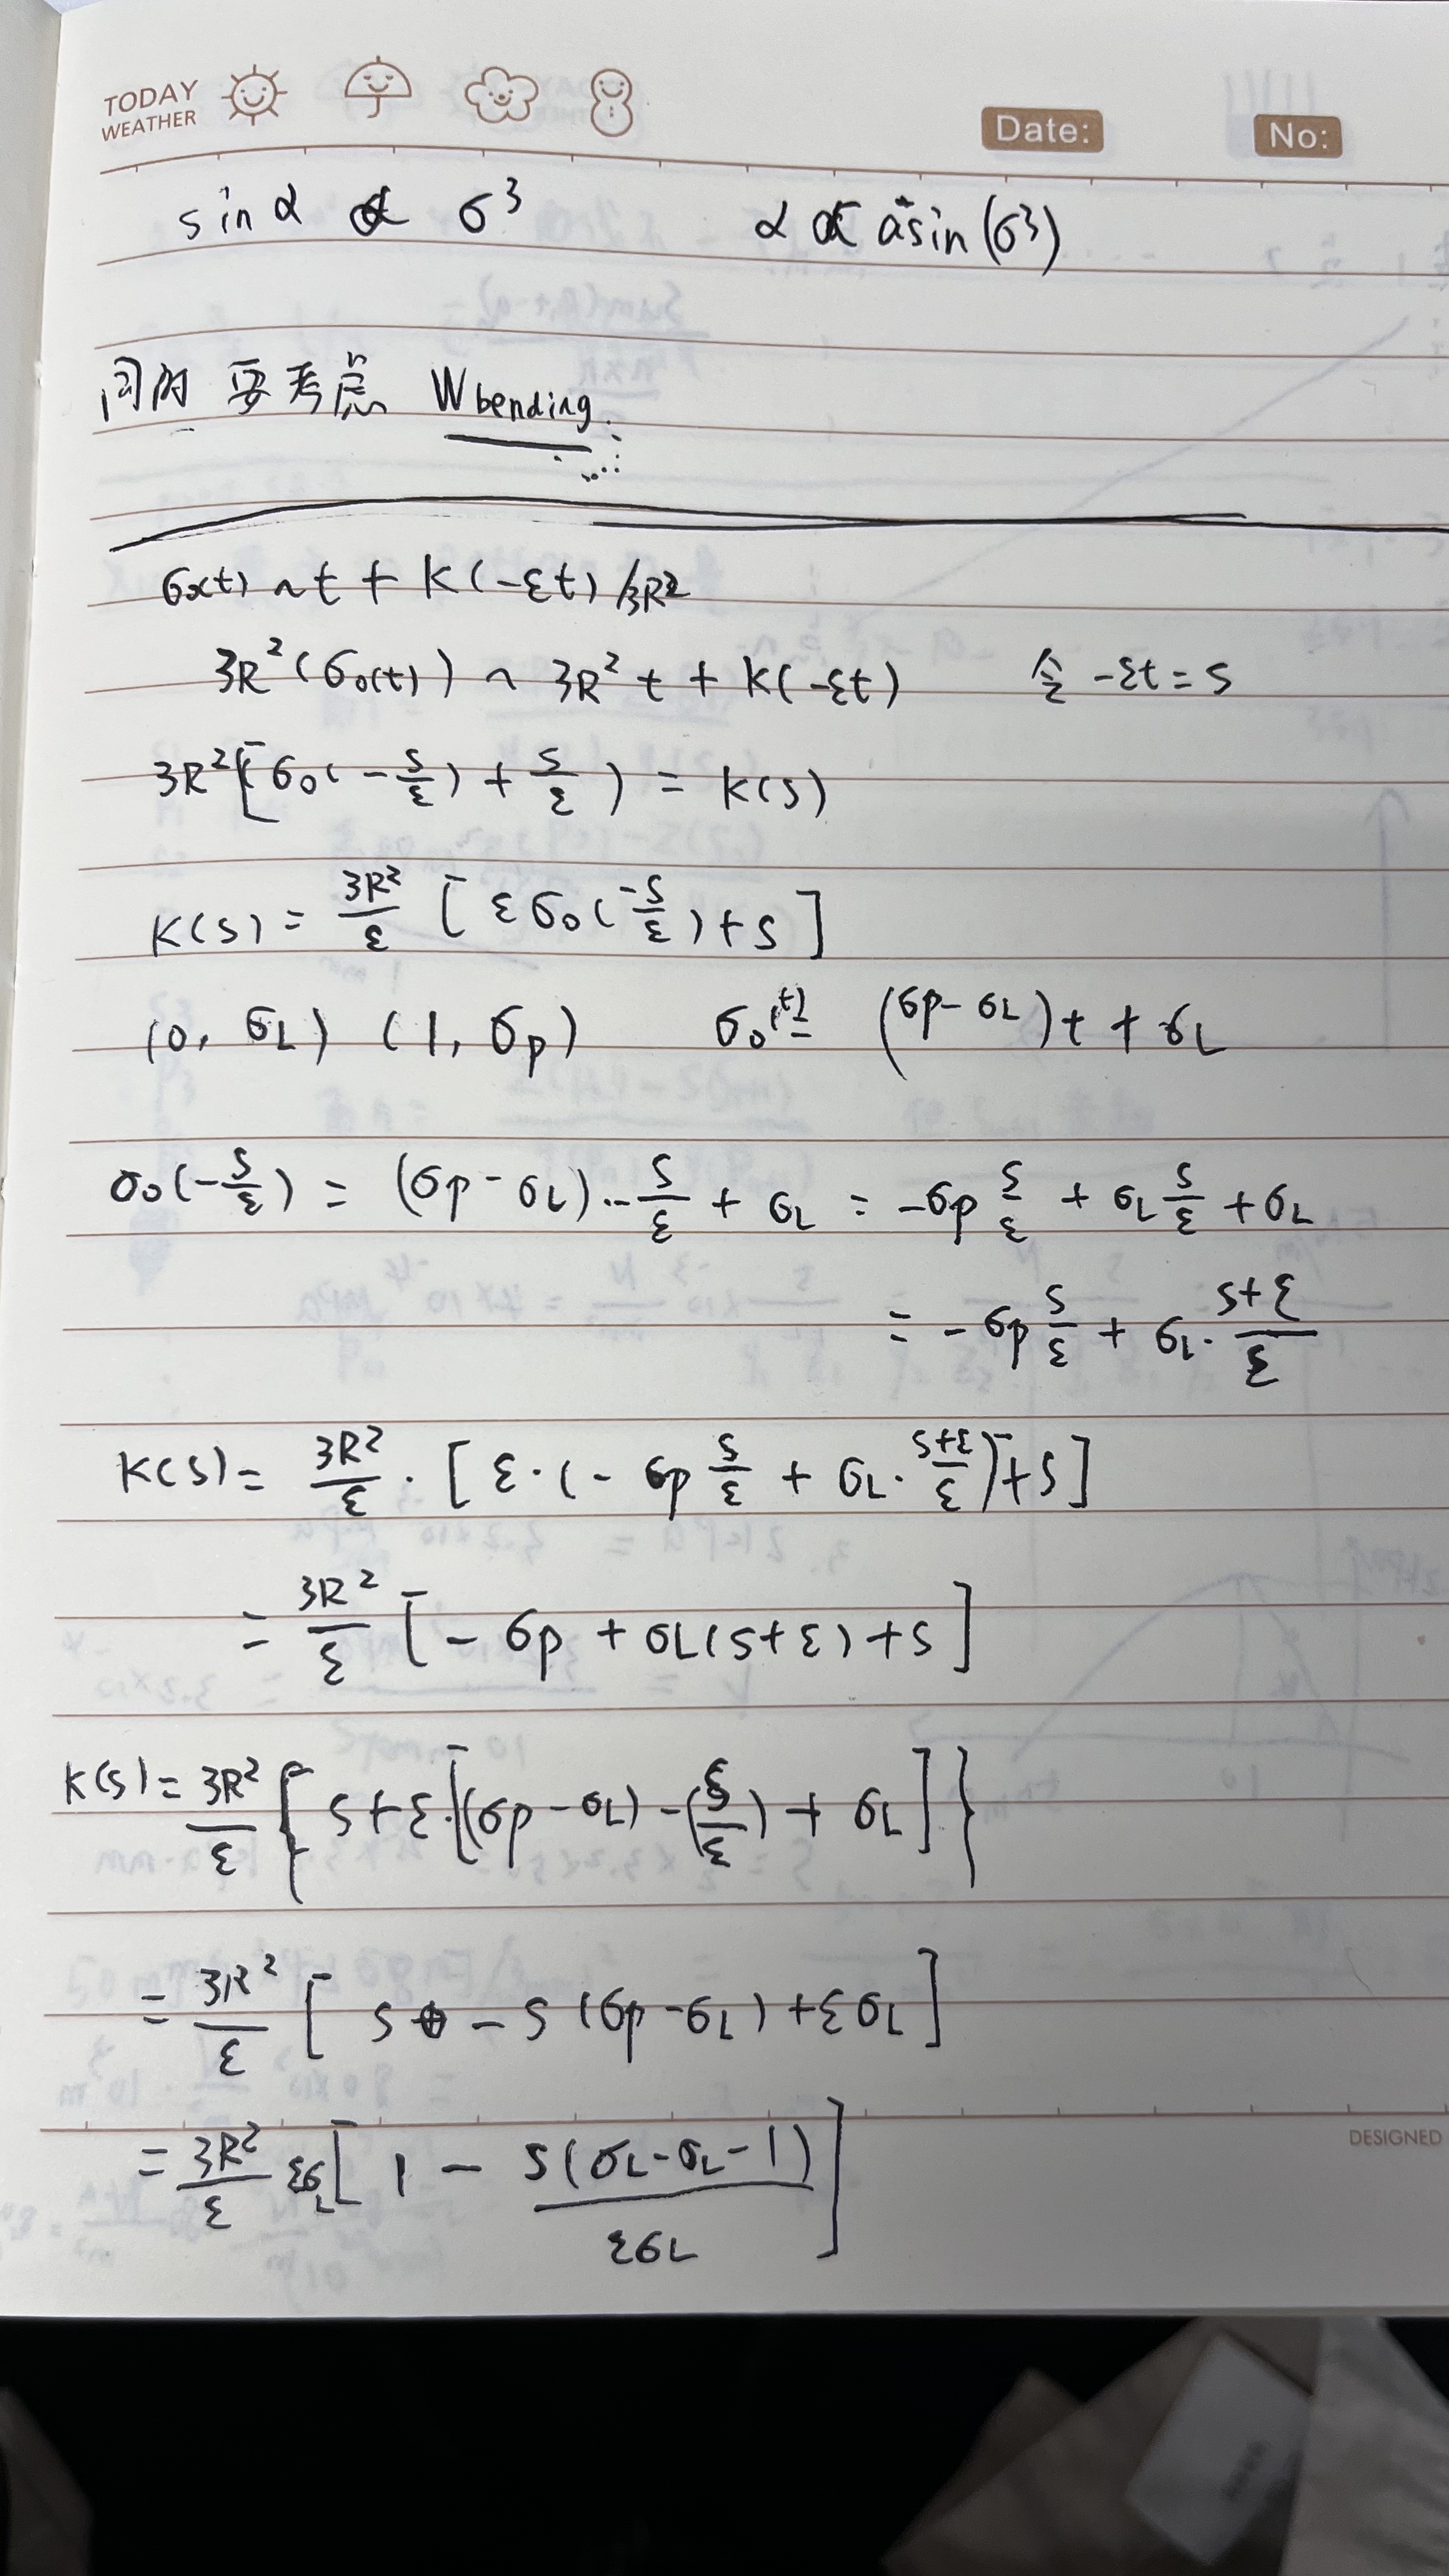 TODAY WEATHER Date: No:
sin α ∝ σ³ α ∝ asin(σ³)
同时 要考虑 Wbending
σx(t) ~ t + K(-εt)/3R²
3R²(σ₀(t)) ~ 3R² t + K(-εt) 令 -εt = S
3R²[σ₀(-S/ε) + S/ε) = K(S)
K(S) = 3R²/ε [εσ₀(-S/ε) + S]
(0, σL) (1, σp) σ₀(t) = (σp - σL)t + σL
σ₀(-S/ε) = (σp - σL)·-S/ε + σL = -σp S/ε + σL S/ε + σL
= -σp S/ε + σL·(S+ε)/ε
K(S) = 3R²/ε · [ε·(-σp S/ε + σL·(S+ε)/ε) + S]
= 3R²/ε [-σp + σL(S+ε) + S]
K(S) = 3R²/ε {S+ε·[(σp - σL) -(S/ε) + σL]}
= 3R²/ε [S - S(σp - σL) + εσL]
= 3R²/ε εσL [1 - S(σL - σL - 1)/εσL]
DESIGNED